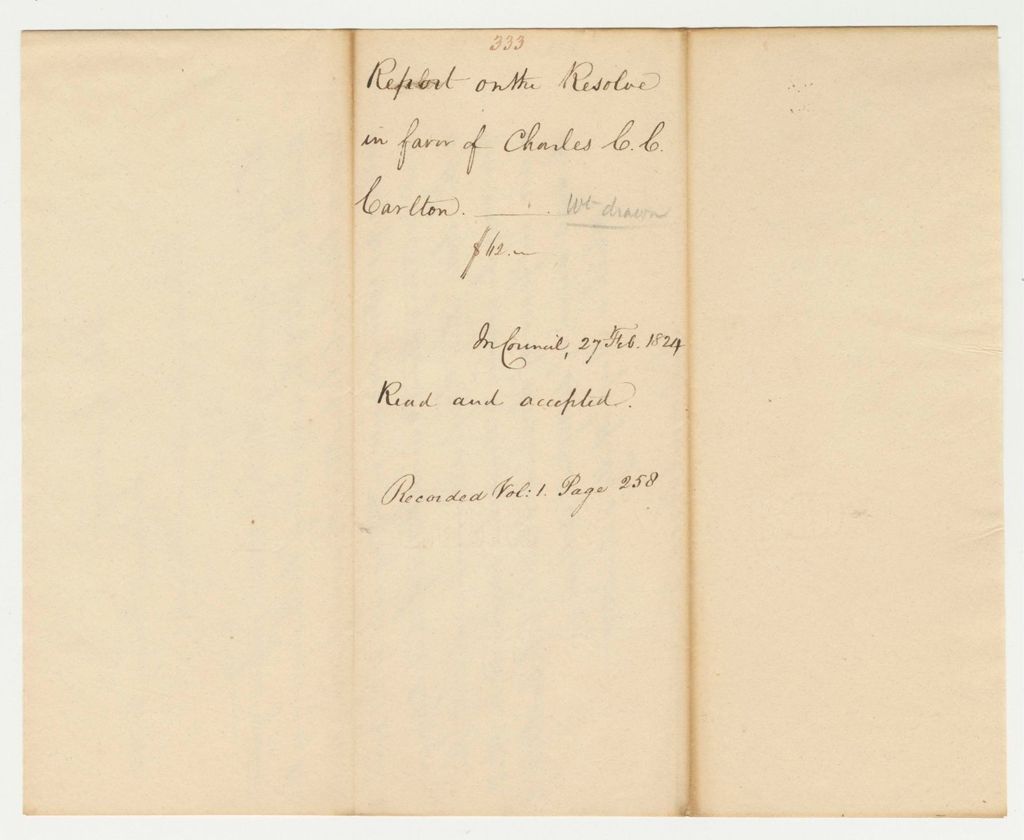 333
Report on the Resolve
in favor of Charles C. C.
Carlton. Wt drawn
$112.
In Council, 27 Feb. 1824
Read and accepted.
Recorded Vol: 1. Page 258